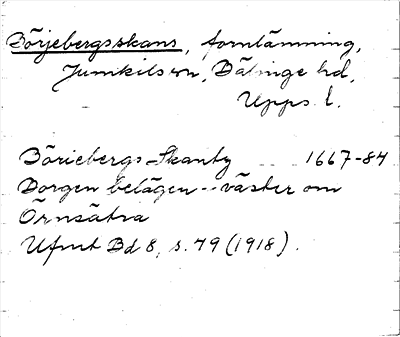 Börjebergsskans, fornlämning,
Jumkils sn, Bälinge hd,
Upps. l.
Böriebergs-Skantz ... 1667-84
Borgen belägen -- väster om
Örnsätra
Ufmt Bd 8, s. 79 (1918).